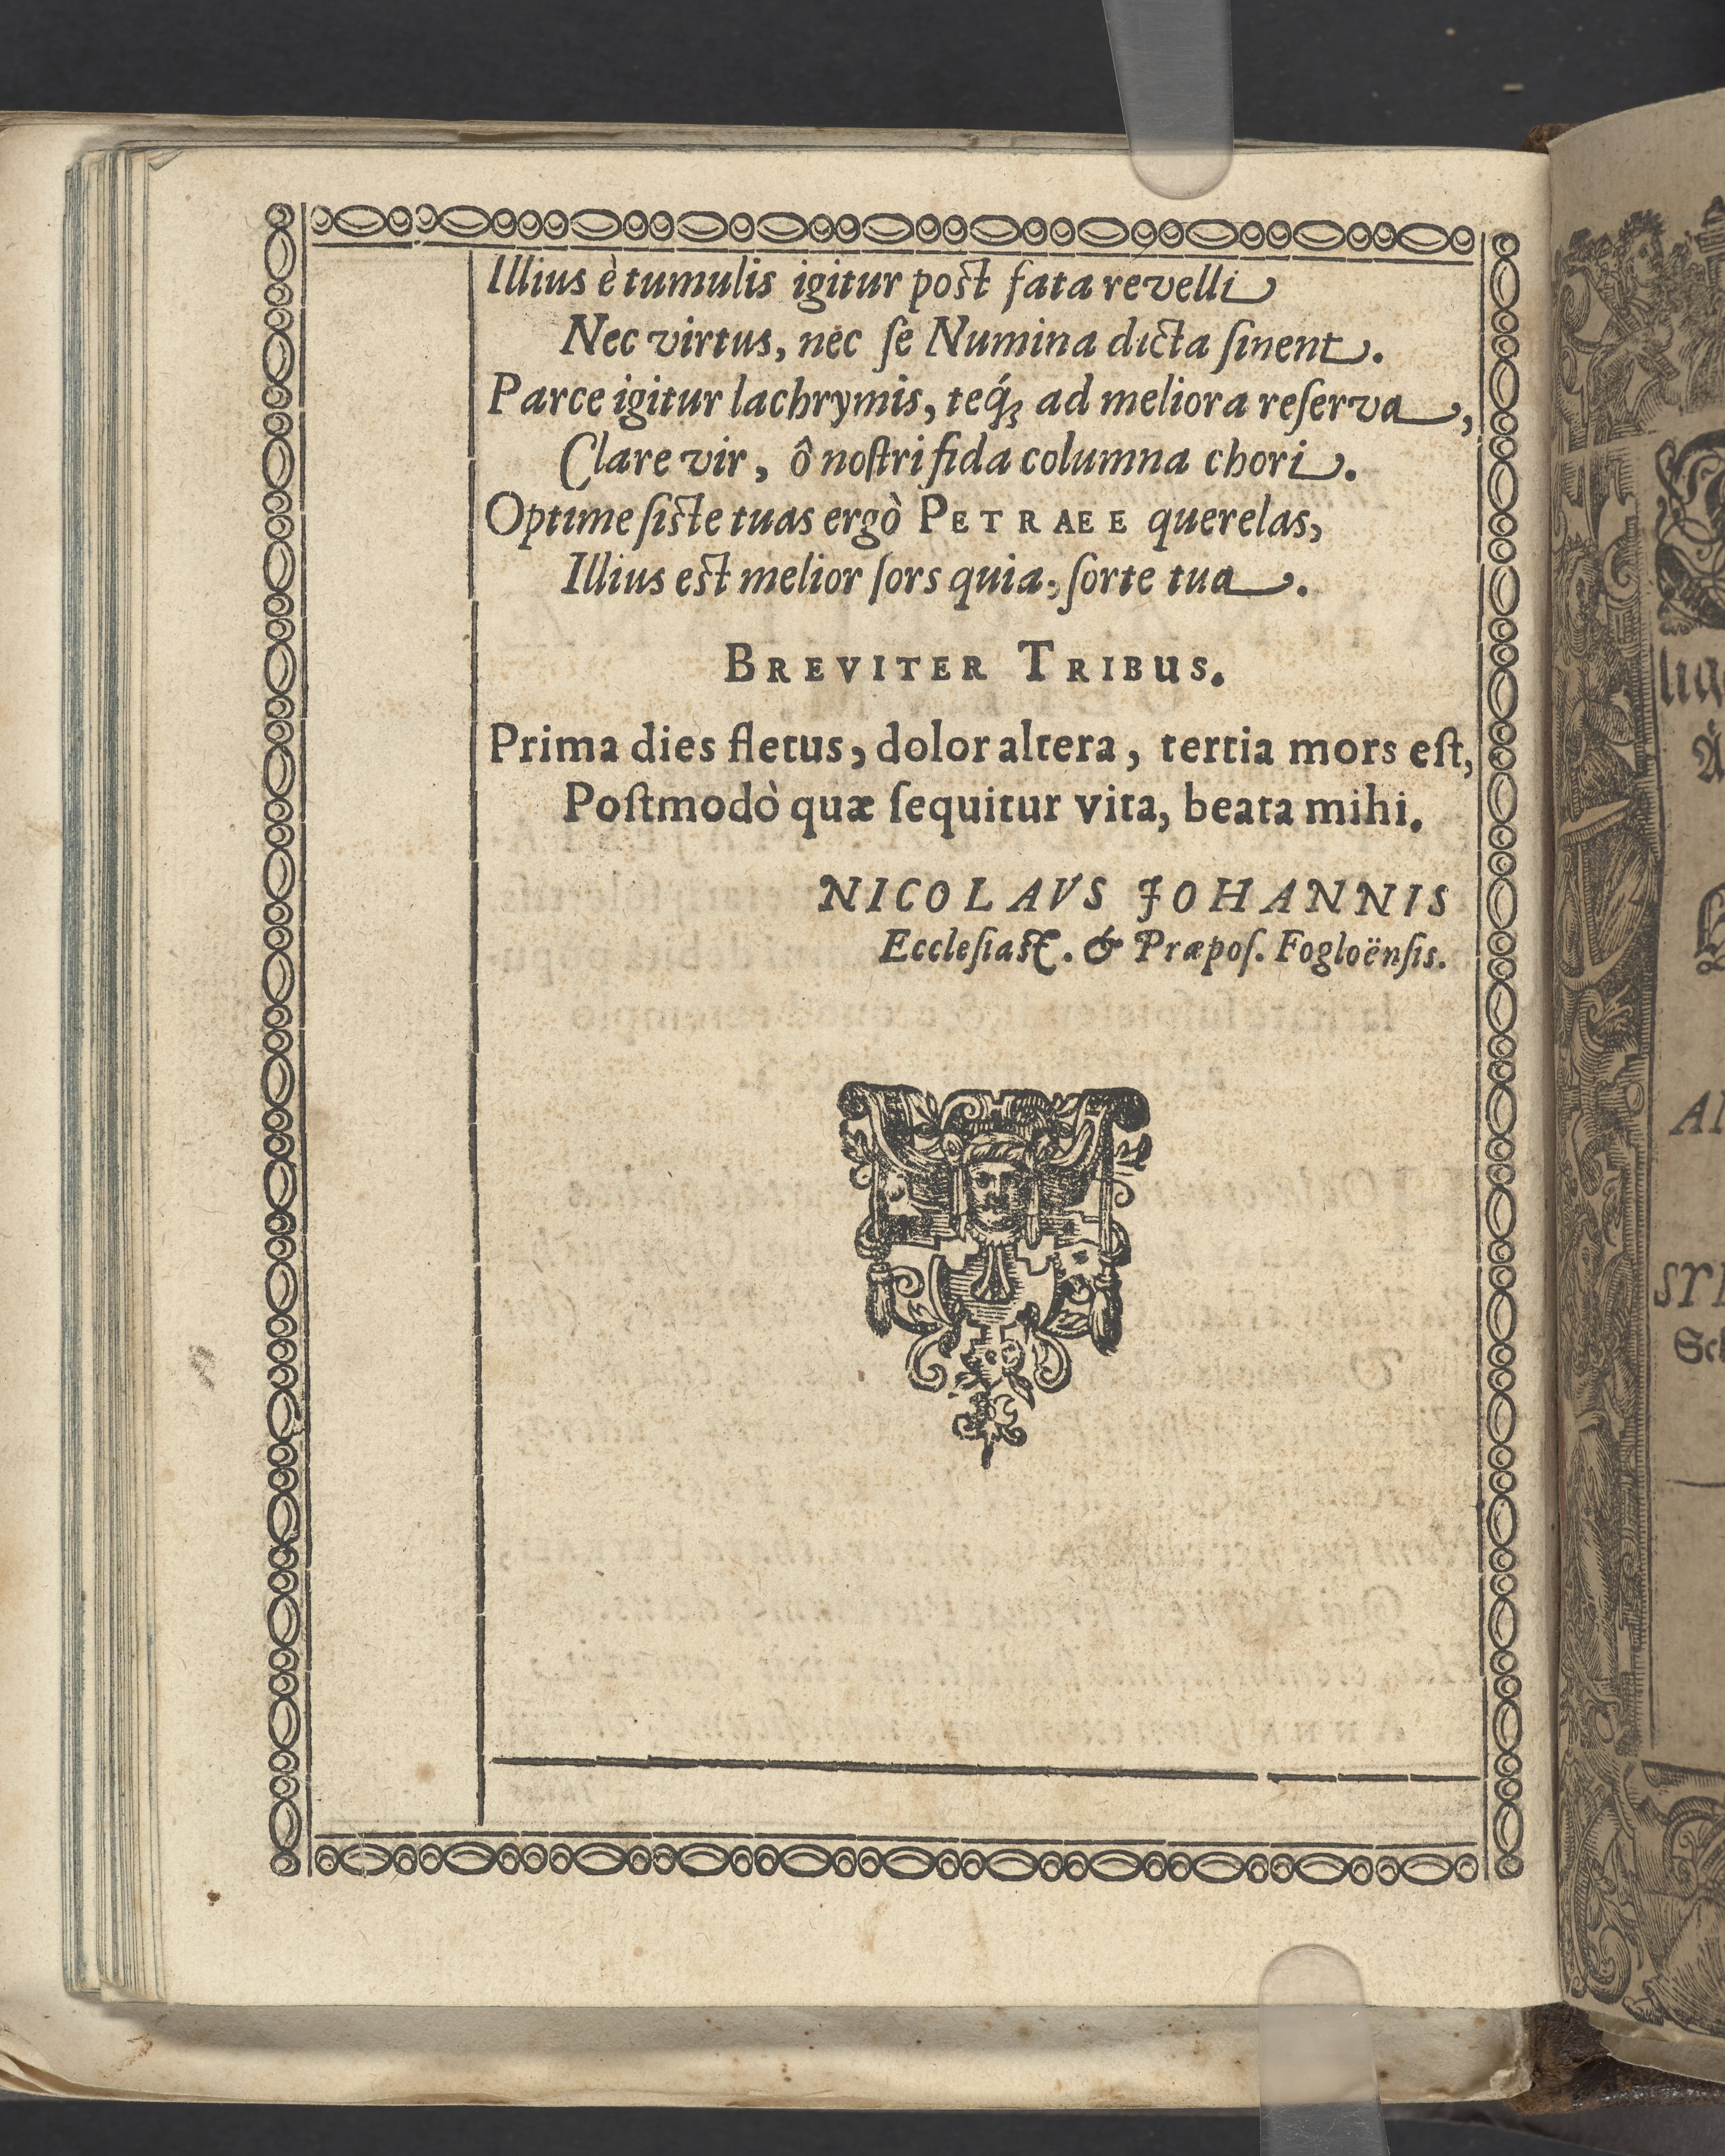 Illius è tumulis igitur post fata revelli
Nec virtus, nec se Numina dicta ſinent.
Parce igitur lachrymis, teq́ꝫ ad meliora reſerva,
Clare vir, ô noſtri fida columna chori.
Optime ſiſte tuas ergò PETRAEE querelas,
Illius est melior ſors quia, ſorte tua.
BREVITER TRIBUS.
Prima dies fletus, dolor altera, tertia mors eſt,
Poſtmodò quæ ſequitur vita, beata mihi.
NICOLAVS JOHANNIS
Eccleſiaſt. & Præpoſ. Fogloënſis.